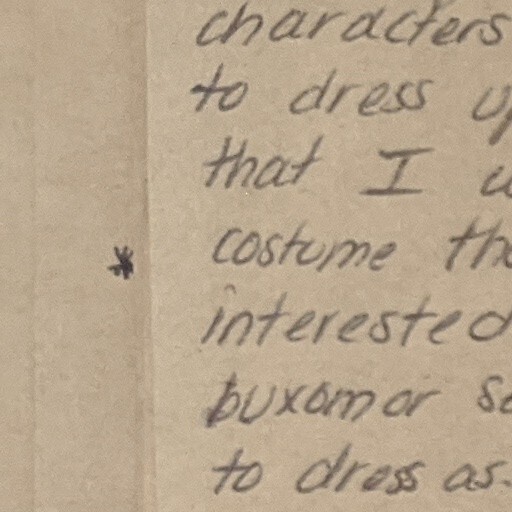 characters
to dress up
that I
costume the
* interested
buxom or so
to dress as.